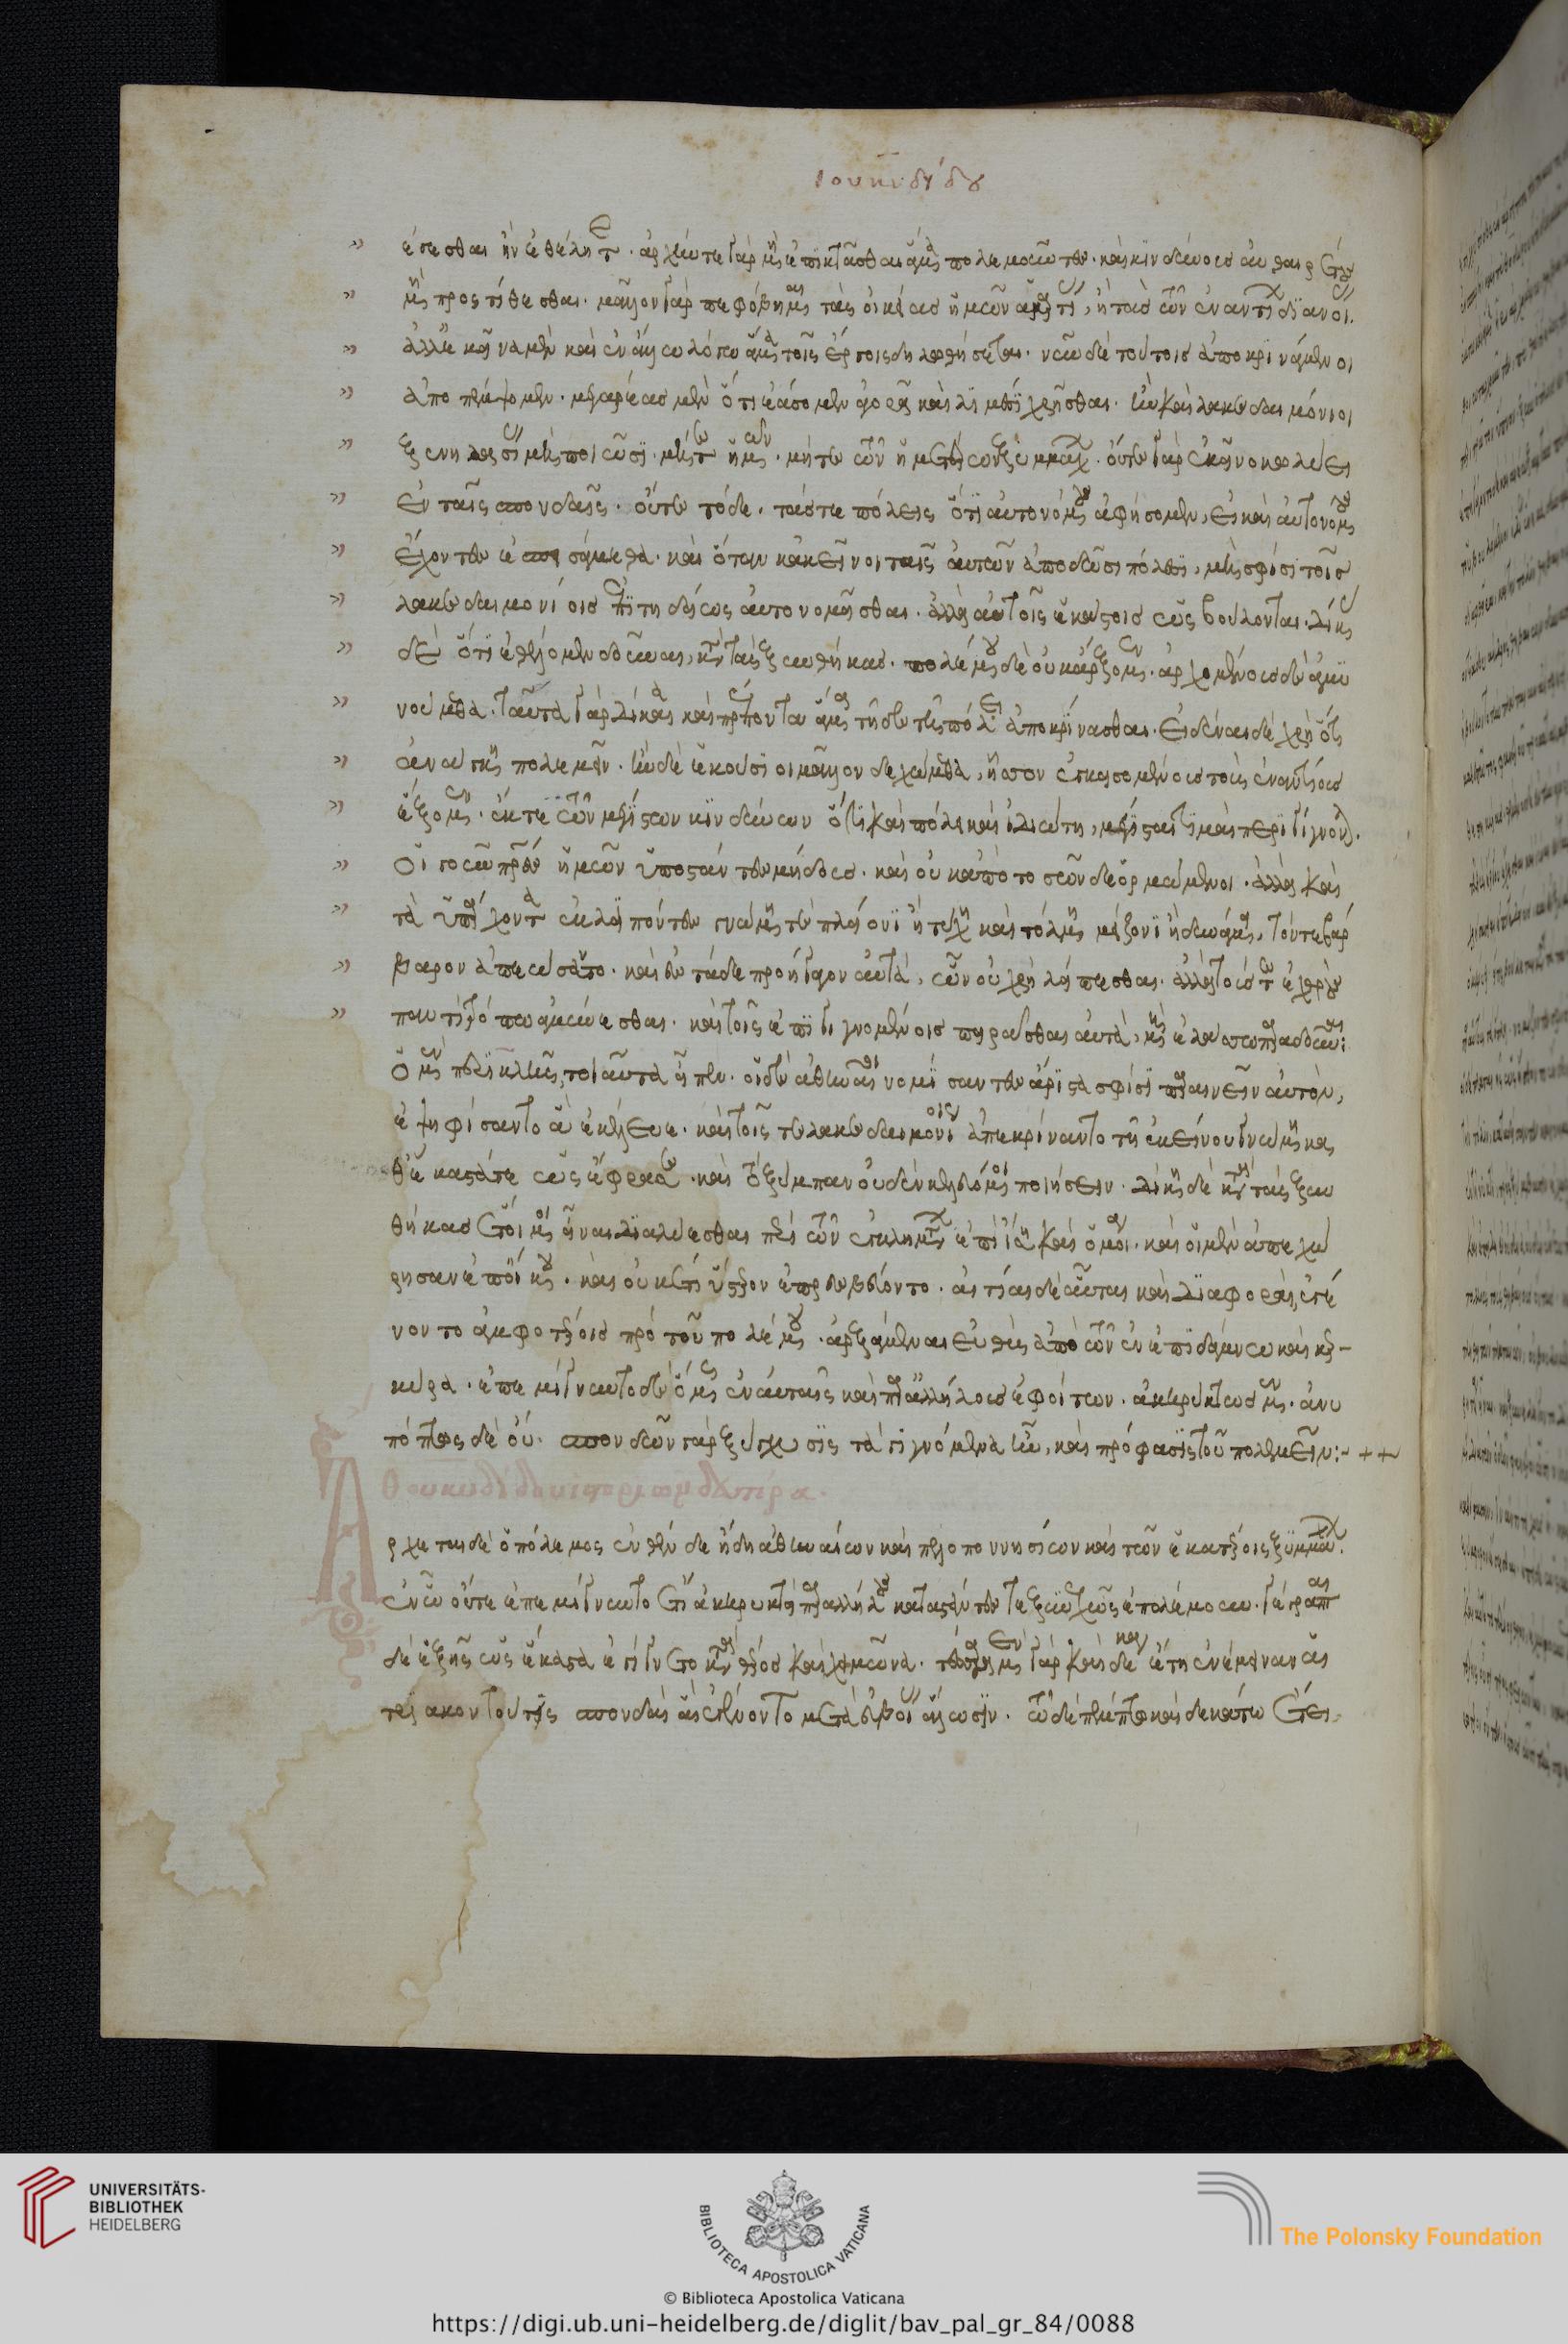 ἔσεσθαι ἢν ἐθέλητε. ἀρχήν τε γὰρ μὴ ἐπικτᾶσθαι ἅμα πολεμοῦντες. καὶ κινδύνους αὐθαιρέτους
μὴ προστίθεσθαι. μᾶλλον γὰρ πεφόβημαι τὰς οἰκείας ἡμῶν ἁμαρτίας, ἢ τὰς τῶν ἐναντίων διανοίας.
ἀλλ' ἐκεῖνα μὲν καὶ ἐν ἄλλω λόγω ἅμα τοῖς ἔργοις δηλωθήσεται. νῦν δὲ τούτοις ἀποκρινάμενοι
ἀποπέμψωμεν. μεγαρέας μὲν ὅτι ἐάσομεν ἀγορᾶ καὶ λιμέσι χρῆσθαι. ἢν καὶ λακεδαιμόνιοι
ξενηλασίας μὴ ποιῶσι. μήτε ἡμῶν. μήτε τῶν ἡμετέρων ξυμμάχων. οὔτε γὰρ ἐκεῖνο κωλύει
ἐν ταῖς σπονδαῖς. οὔτε τόδε. τὰς τε πόλεις ὅτι αὐτονόμους ἀφήσομεν, εἰ καὶ αὐτονόμους
ἔχοντες ἐσπεισάμεθα. καὶ ὅταν κἀκεῖνοι ταῖς αὐτῶν ἀποδῶσι πόλεσι, μὴ σφίσι τοῖς
λακεδαιμονίοις ἐπιτηδείως αὐτονομεῖσθαι. ἀλλὰ αὐτοῖς ἑκάστοις ὡς βούλονται. δίκας
δὲ ὅτι ἐθέλομεν δοῦναι, κατὰ τὰς ξυνθήκας. πολέμου δὲ οὐκ ἄρξομεν. ἀρχομένους δὲ ἀμυ
νούμεθα. ταῦτα γὰρ δίκαια καὶ πρέποντα ἅμα τῆδε τῆ πόλει ἀποκρίνασθαι. εἰδέναι δὲ χρὴ ὅτι
ἀνάγκη πολεμεῖν. ἢν δὲ ἑκούσιοι μᾶλλον δεχώμεθα, ἧσσον ἐγκεισομένους τοὺς ἐναντίους
ἕξομεν. ἔκ τε τῶν μεγίστων κινδύνων ὅτι καὶ πόλει καὶ ἰδιώτη, μέγισται τιμαὶ περιγίγνονται.
οἱ γοῦν πατέρες ἡμῶν ὑποστάντες μήδους. καὶ οὐκ ἀπὸ τοσῶνδε ὁρμώμενοι. ἀλλὰ καὶ
τὰ ὑπάρχοντα ἐκλιπόντες γνώμη τε πλείονι ἢ τύχη καὶ τόλμη μείζονι ἢ δυνάμει, τόν τε βάρ
βαρον ἀπεώσαντο. καὶ ἐς τάδε προήγαγον αὐτά, ὧν οὐ χρὴ λείπεσθαι. ἀλλὰ τούς τε ἐχθροὺς
παντὶ τρόπω ἀμύνεσθαι. καὶ τοῖς ἐπιγιγνομένοις πειρᾶσθαι αὐτὰ, μὴ ἐλάσσω παραδοῦναι:
ὁ μὲν περικλῆς, τοιαῦτα εἶπεν. οἱ δὲ ἀθηναῖοι νομίσαντες ἄριστα σφίσι παραινεῖν αὐτὸν,
ἐψηφίσαντο ἃ ἐκέλευε. καὶ τοῖς τε λακεδαιμονίοις ἀπεκρίναντο τῆ ἐκείνου γνώμη κα
θ' ἕκαστά τε ὡς ἔφρασε. καὶ τὸ ξύμπαν οὐδὲν κελευόμενοι ποιήσειν. δίκη δὲ κατὰ τὰς ξυν
θήκας ἑτοῖμοι εἶναι διαλύεσθαι περὶ τῶν ἐγκλημάτων ἐπὶ ἴση καὶ ὁμοία. καὶ οἱ μὲν ἀπεχώ
ρησαν ἐπ' οἴκου. καὶ οὐκέτι ὕστερον ἐπρεσβεύοντο. αἰτίαι δὲ αὗται καὶ διαφοραὶ, ἐγέ
νοντο ἀμφοτέροις πρὸ τοῦ πολέμου. ἀρξάμεναι εὐθὺς ἀπὸ τῶν ἐν ἐπιδάμνω καὶ κερ-
κύρα. ἐπεμίγνυντο δὲ ὅμως ἐν αὐταῖς καὶ παρ' ἀλλήλους ἐφοίτων. ἀκηρύκτως μὲν. ἀνυ
πόπτως δὲ οὔ. σπονδῶν γὰρ ξύγχυσις τὰ γιγνόμενα ἦν, καὶ πρόφασις τοῦ πολεμεῖν:- ++
Ἄρχεται δὲ ὁ πόλεμος ἐνθένδε ἤδη ἀθηναίων καὶ πελοποννησίων καὶ τῶν ἑκατέροις ξυμμάχων.
ἐν ὧ οὔτε ἐπεμίγνυντο ἔτι ἀκηρυκτεὶ παρ' ἀλλήλους καταστάντες τε ξυνεχῶς ἐπολέμουν. γέγραπται
δὲ ἑξῆς ὡς ἕκαστα ἐγίγνετο κατὰ θέρος καὶ χειμῶνα. τέσσαρα μὲν γὰρ καὶ δέκα ἔτη ἐνέμειναν αἱ
τριακοντούτεις σπονδαὶ αἳ ἐγένοντο μετὰ εὐβοίας ἅλωσιν. τῶ δὲ πέμπτω καὶ δεκάτω ἔτει
UNIVERSITÄTS-
BIBLIOTHEK
HEIDELBERG
BIBLIOTECA APOSTOLICA VATICANA
The Polonsky Foundation
© Biblioteca Apostolica Vaticana
https://digi.ub.uni-heidelberg.de/diglit/bav_pal_gr_84/0088